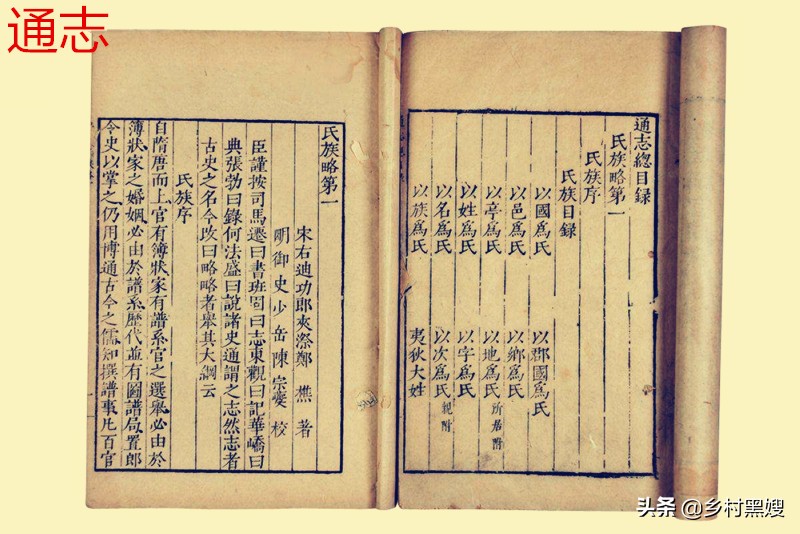 通志
通志總目録
氏族略第一
氏族序
氏族目録
以國爲氏 以郡國爲氏
以邑爲氏 以鄉爲氏
以亭爲氏 以地爲氏 所居附
以姓爲氏 以字爲氏
以名爲氏 以次爲氏 親附
以族爲氏 夷狄大姓
氏族略第一
宋右迪功郎夾漈鄭 樵 著
明御史少岳陳宗夔 校
臣謹按司馬遷曰書班固曰志東觀曰記華嶠曰
典張勃曰錄何法盛曰說諸史通謂之志然志者
古史之名今改曰略略者舉其大綱云
氏族序
自隋唐而上官有簿狀家有譜系官之選舉必由於
簿狀家之婚姻必由於譜系歷代並有圖譜局置郎
令史以掌之仍用博通古今之儒知撰譜事凡百官
头条 @乡村黑嫂